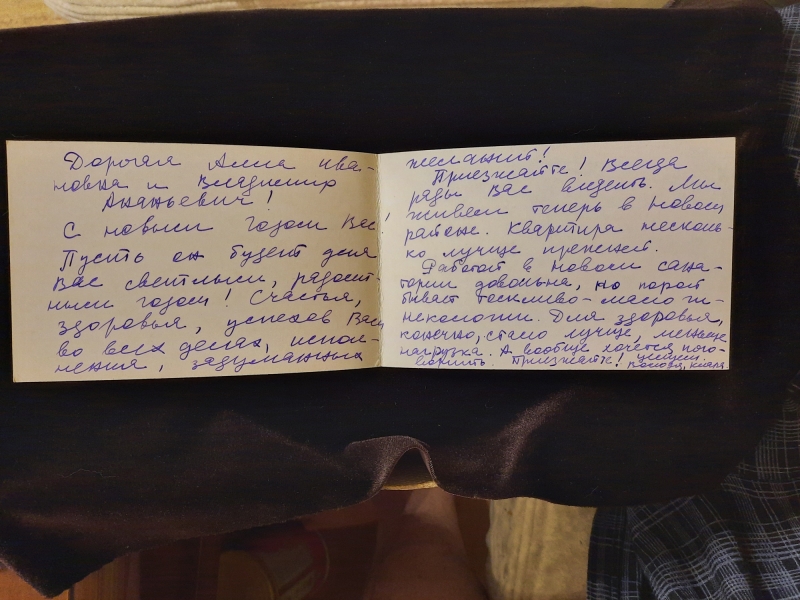 Дорогая Алла Ива-
новна и Владимир
Ананьевич!
С новым годом Вас!
Пусть он будет для
Вас светлым, радост-
ным годом! Счастья,
здоровья, успехов Вам
во всех делах, испол-
нения, задуманных
желаний!
Приезжайте! Всегда
рады Вас видеть. Мы
живём теперь в новом
районе. Квартира несколь-
ко лучше прежней.
Работой в новом сана-
тории довольна, но порой
бывает тоскливо - мало ги-
некологии. Для здоровья,
конечно, стало лучше, меньше
нагрузка. А вообще хочется пого-
ворить. Приезжайте! Целуем.